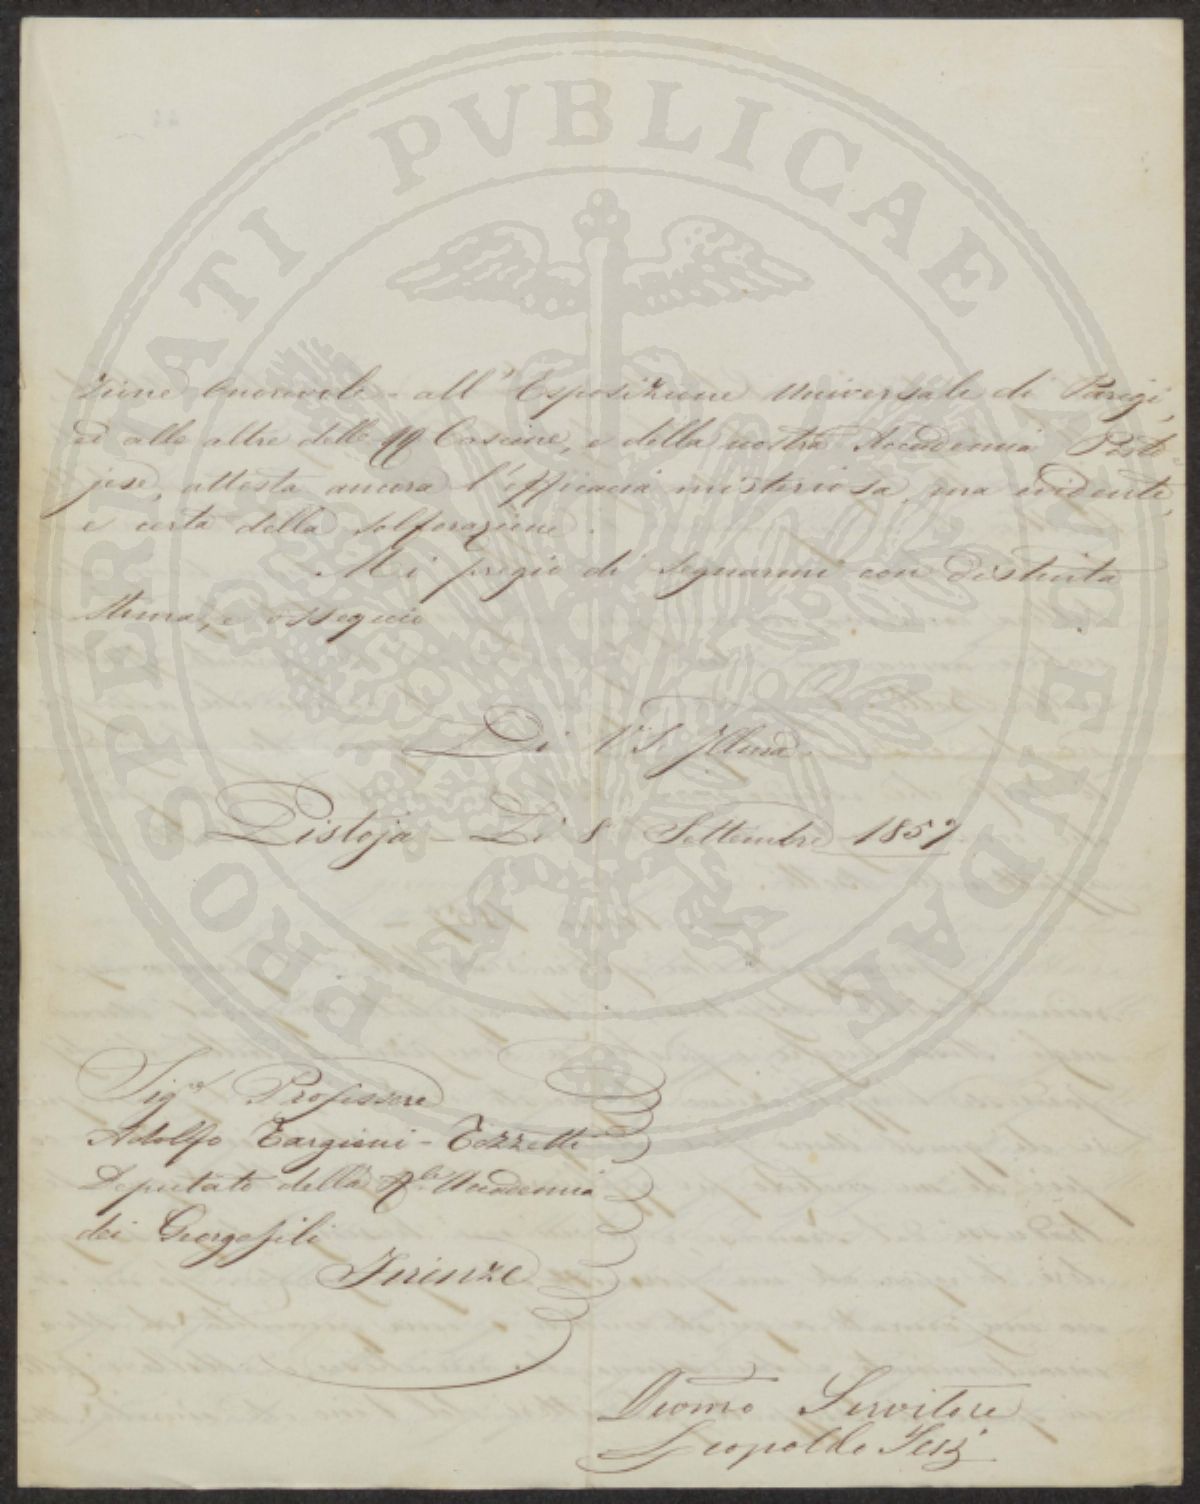 PROSPERITATI PVBLICAE AVGENDAE
zione onorevole - all'Esposizione Universale di Parigi,
ed alle altre delle RR Cascine, e della nostra Accademia Pisto-
jese, attesta ancora l'efficacia misteriosa, ma evidente,
e certa della solforazione.
Mi pregio di segnarmi con distinta
stima, e ossequio
Di V. S. Illma.
Pistoja - Li 8 Settembre 1857
Sigr. Professore
Adolfo Targioni - Tozzetti
Deputato della Rle. Accademia
dei Georgofili
Firenze
Devmo Servitore
Leopoldo